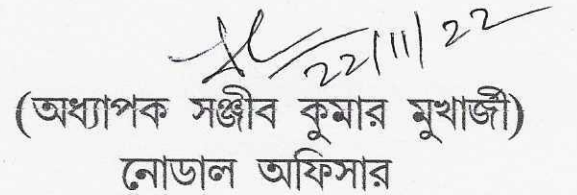 22/11/22
(অধ্যাপক সঞ্জীব কুমার মুখার্জী)
নোডাল অফিসার